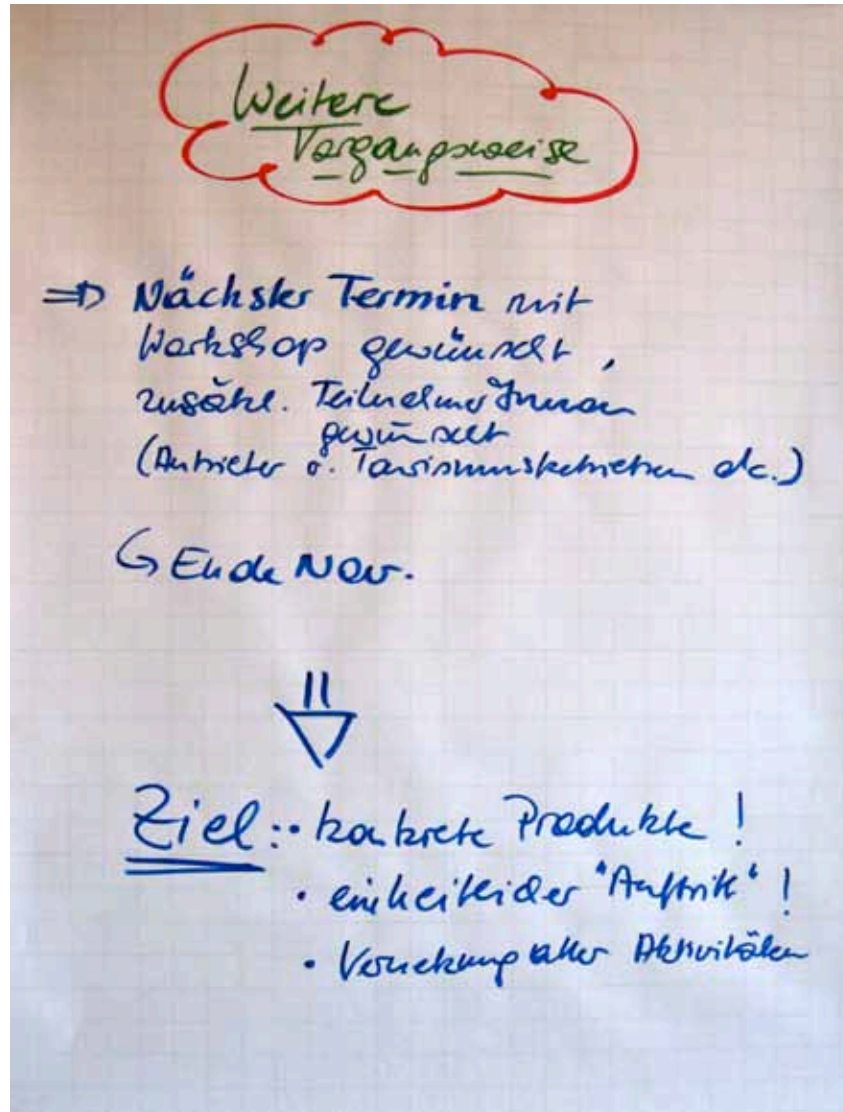 Weitere
Vorgangsweise
⇒ Nächster Termin mit
Workshop gewünscht,
zusätzl. TeilnehmerInnen
gewünscht
(Anbieter v. Tourismusbetrieben etc.)
↳ Ende Nov.
Ziel: • konkrete Produkte!
• einheitlicher "Auftritt"!
• Vernetzung aller Aktivitäten